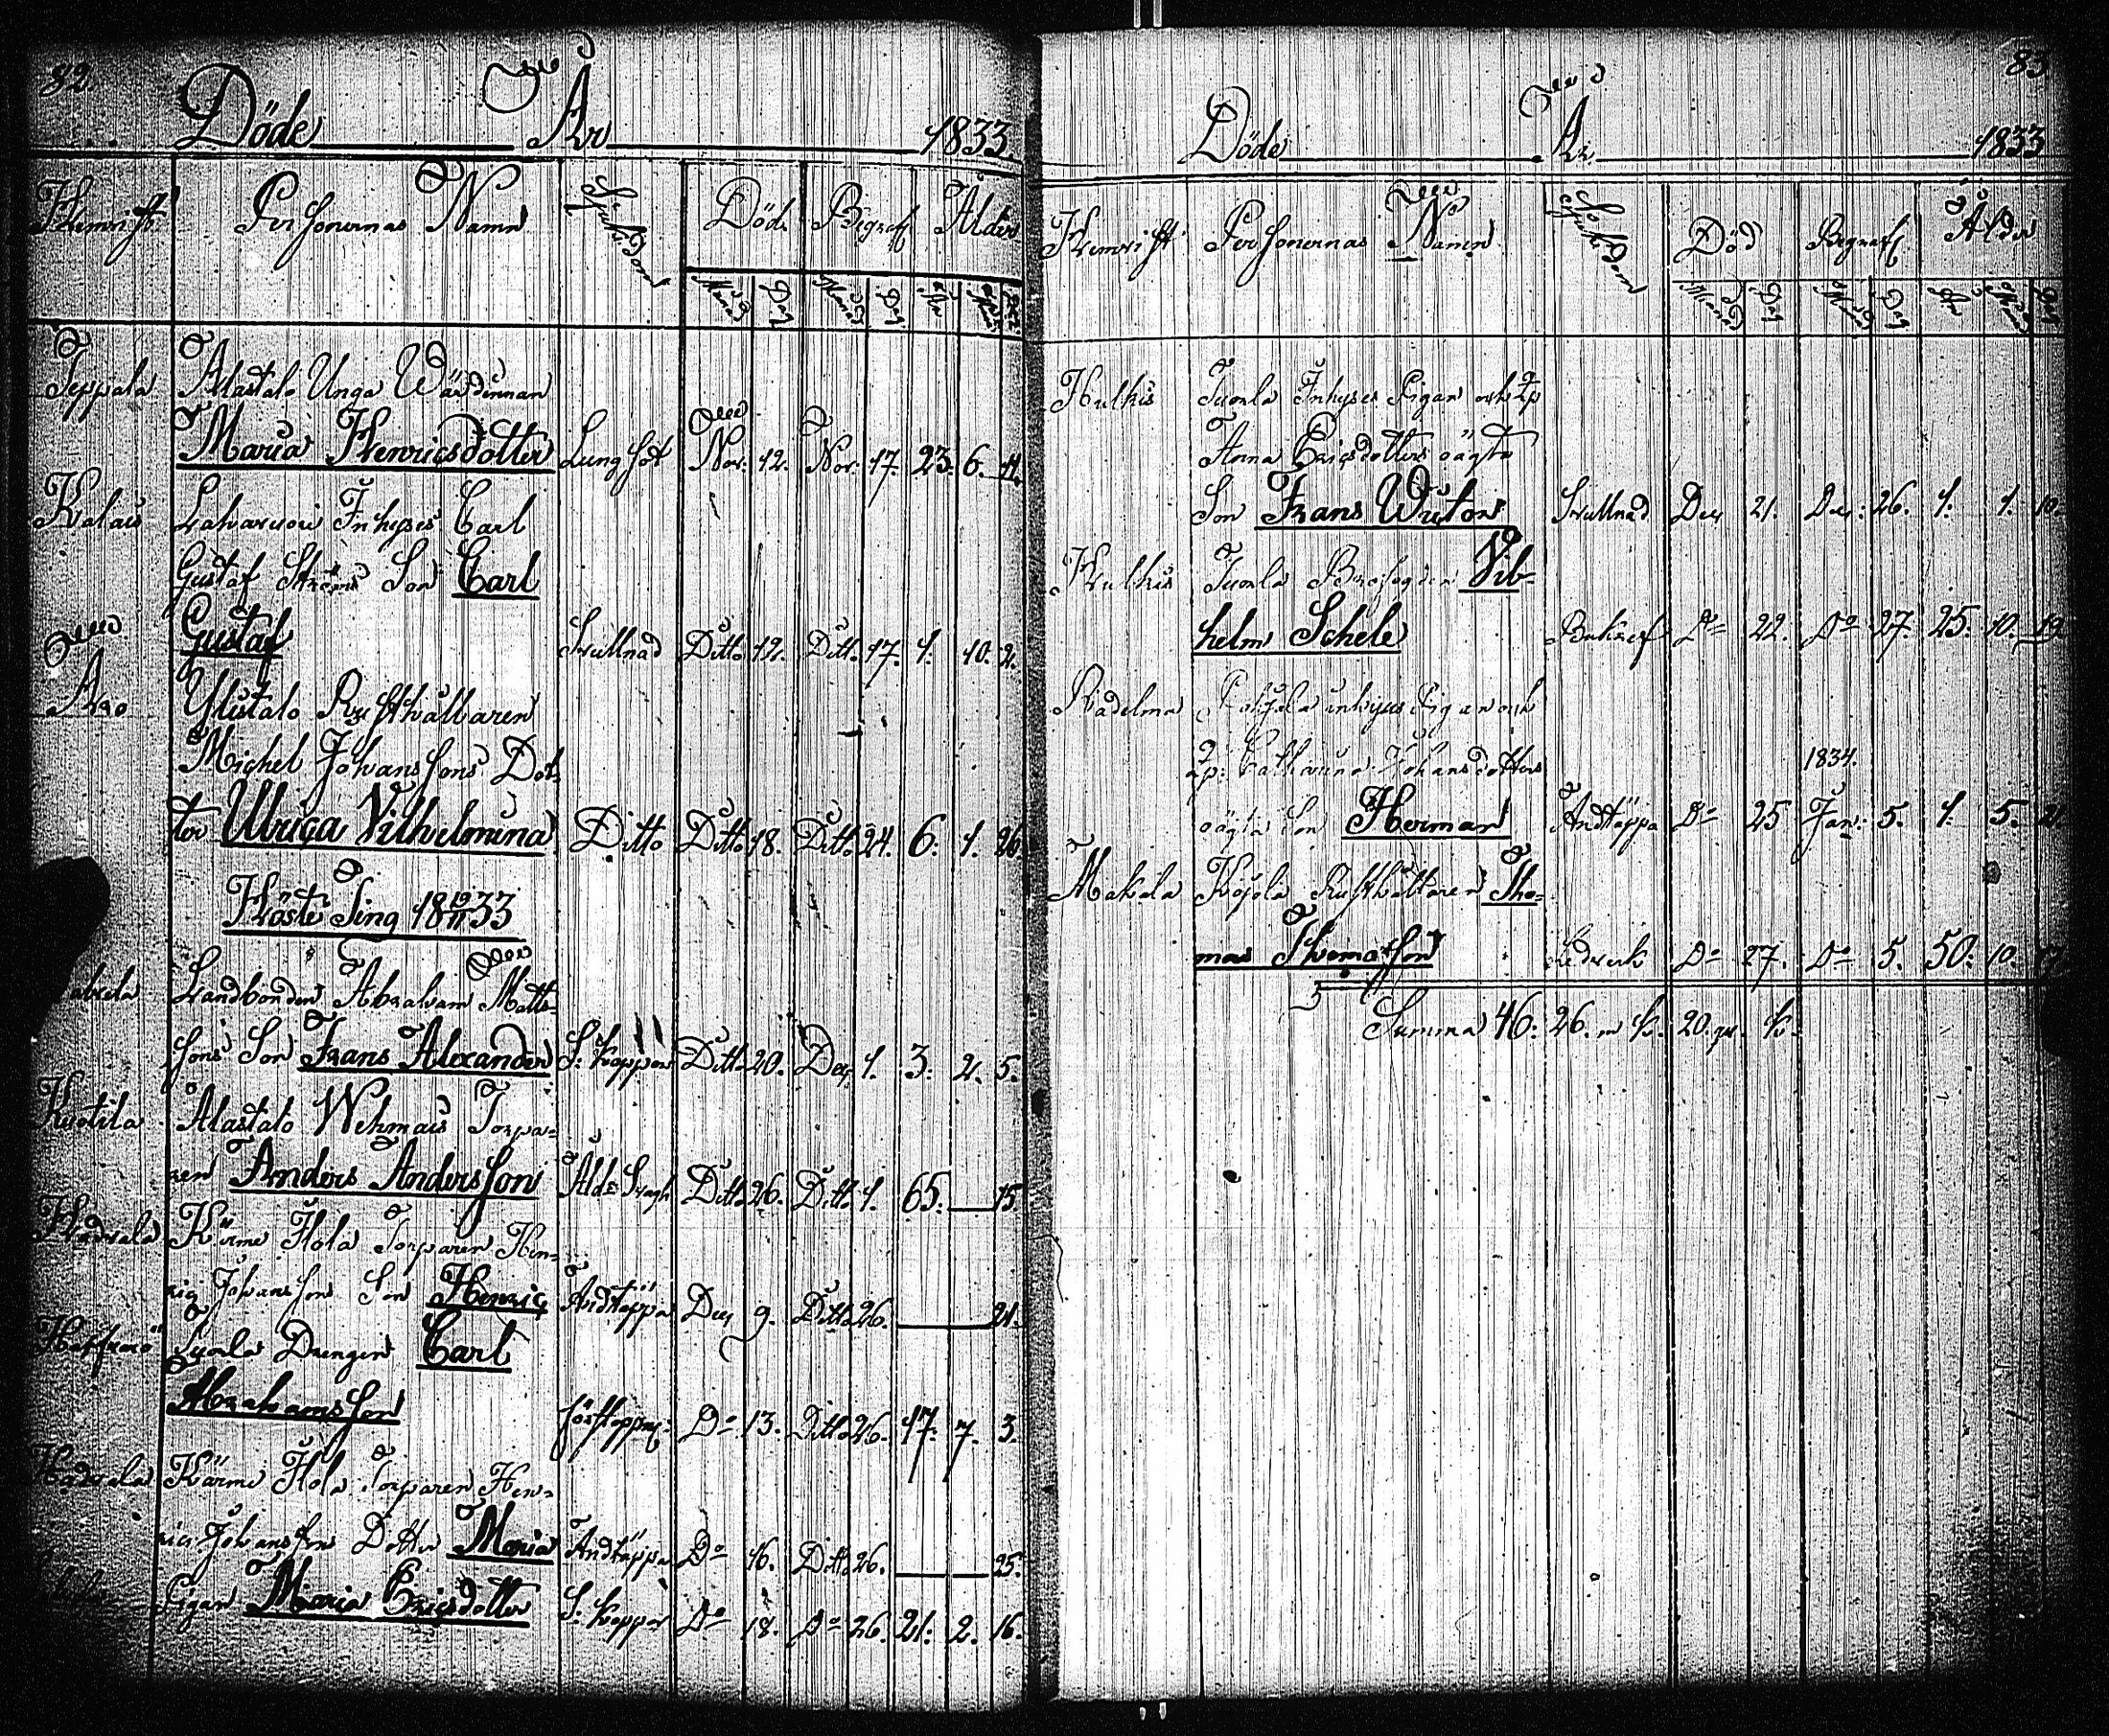 82.
Döde År 1833.
Hemvist Personernas Namn Sjukdom Död Begraf. Ålder
Månad Dag Månad Dag År Månad Dag
Seppala Alastalo Unga Wärdinnan
Maria Henricsdotter Lungsot Nov: 12. Nov: 17. 23. 6. 11.
Kalais Inhyses Carl
Gustaf Ströms Son Carl
Gustaf Svullnad Ditto 12. Ditto 17. 1. 10. 2.
Aro Ylistalo Rusthållaren
Michel Johanssons Dot
ter Ulrica Vilhelmina Ditto Ditto 18. Ditto 24. 6. 1. 26.
Höste Ting 18 19/11 33
Landbonden Abraham Matts-
sons Son Frans Alexander S: koppor Ditto 20. Dec. 1. 3. 2. 5.
Kuotila Alastalo Wehmais Torpa-
ren Anders Andersson Ålds Svagh Ditto 26. Ditto 1. 65. 15.
Hadvala Kärme Ilola Torparen Hen-
ric Johanssons Son Henric Andtäppa Dec 9. Ditto 26. 21.
Juonla Drengen Carl
Abrahamsson D:o 13. Ditto 26. 17. 7. 3.
Hadvala Kärme Ilola Torparen Hen-
rics Johanssons Dotter Maria Andtäppa D:o 16. Ditto 26. 25.
Pigan Maria Ericsdotter S: koppor D:o 18. D:o 26. 21. 2. 16.
83
Döde År 1833
Hemvist Personernas Namn Sjukdom Död Begraf. Ålder
Månad Dag Månad Dag År Månad Dag
Hulkis Juonla Inhyses Pigan och qp
Anna Ericsdotters oägta
Son Frans Victor Svullnad Dec 21. Dec: 26. 1. 1. 10.
Hulkis Juonla Bokhållaren Vil-
helm Schele D:o 22. D:o 27. 25. 10. 19.
Radelma Pohjala inhyses Pigan och
qp: Catharina Johansdotters
1834.
oägta Son Herman Andtäppa D:o 25 Jan: 5. 1. 5. 2.
Makila Rusthållaren Tho-
mas Thomasson D:o 27. D:o 5. 50. 10.
Summa 46: 26. m k. 20. qv. k.